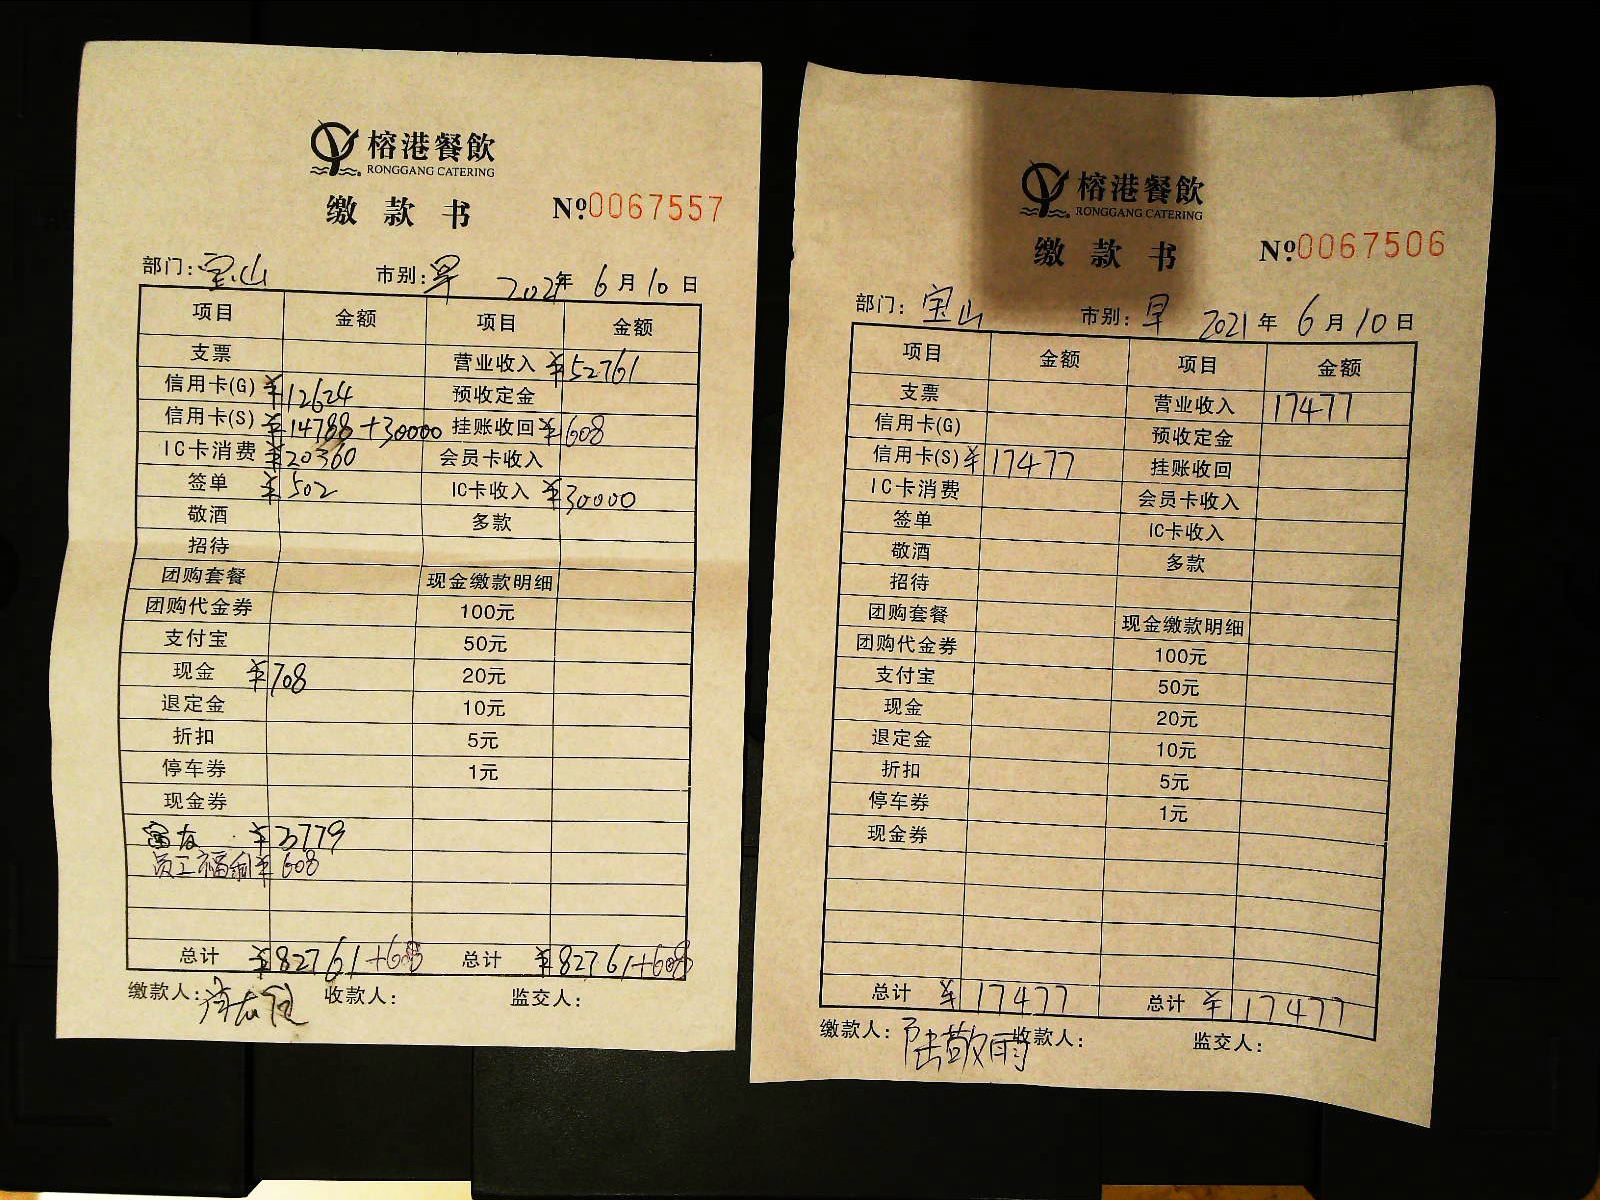 榕港餐飲
RONGGANG CATERING
缴款书 Nº.0067557
部门: 宝山 市别: 早 2021年 6月10日
项目 金额 项目 金额
支票 营业收入 ¥52761
信用卡(G) ¥12624 预收定金
信用卡(S) ¥14788+30000 挂账收回 ¥608
IC卡消费 ¥20360 会员卡收入
签单 ¥502 IC卡收入 ¥30000
敬酒 多款
招待
团购套餐 现金缴款明细
团购代金券 100元
支付宝 50元
现金 ¥708 20元
退定金 10元
折扣 5元
停车券 1元
现金券
¥3779
员工福利 ¥608
总计 ¥82761+608 总计 ¥82761+608
缴款人: 收款人: 监交人:
榕港餐飲
RONGGANG CATERING
缴款书 Nº.0067506
部门: 宝山 市别: 早 2021年 6月10日
项目 金额 项目 金额
支票 营业收入 17477
信用卡(G) 预收定金
信用卡(S) ¥17477 挂账收回
IC卡消费 会员卡收入
签单 IC卡收入
敬酒 多款
招待
团购套餐 现金缴款明细
团购代金券 100元
支付宝 50元
现金 20元
退定金 10元
折扣 5元
停车券 1元
现金券
总计 ¥17477 总计 ¥17477
缴款人: 陆敬雨 收款人: 监交人: